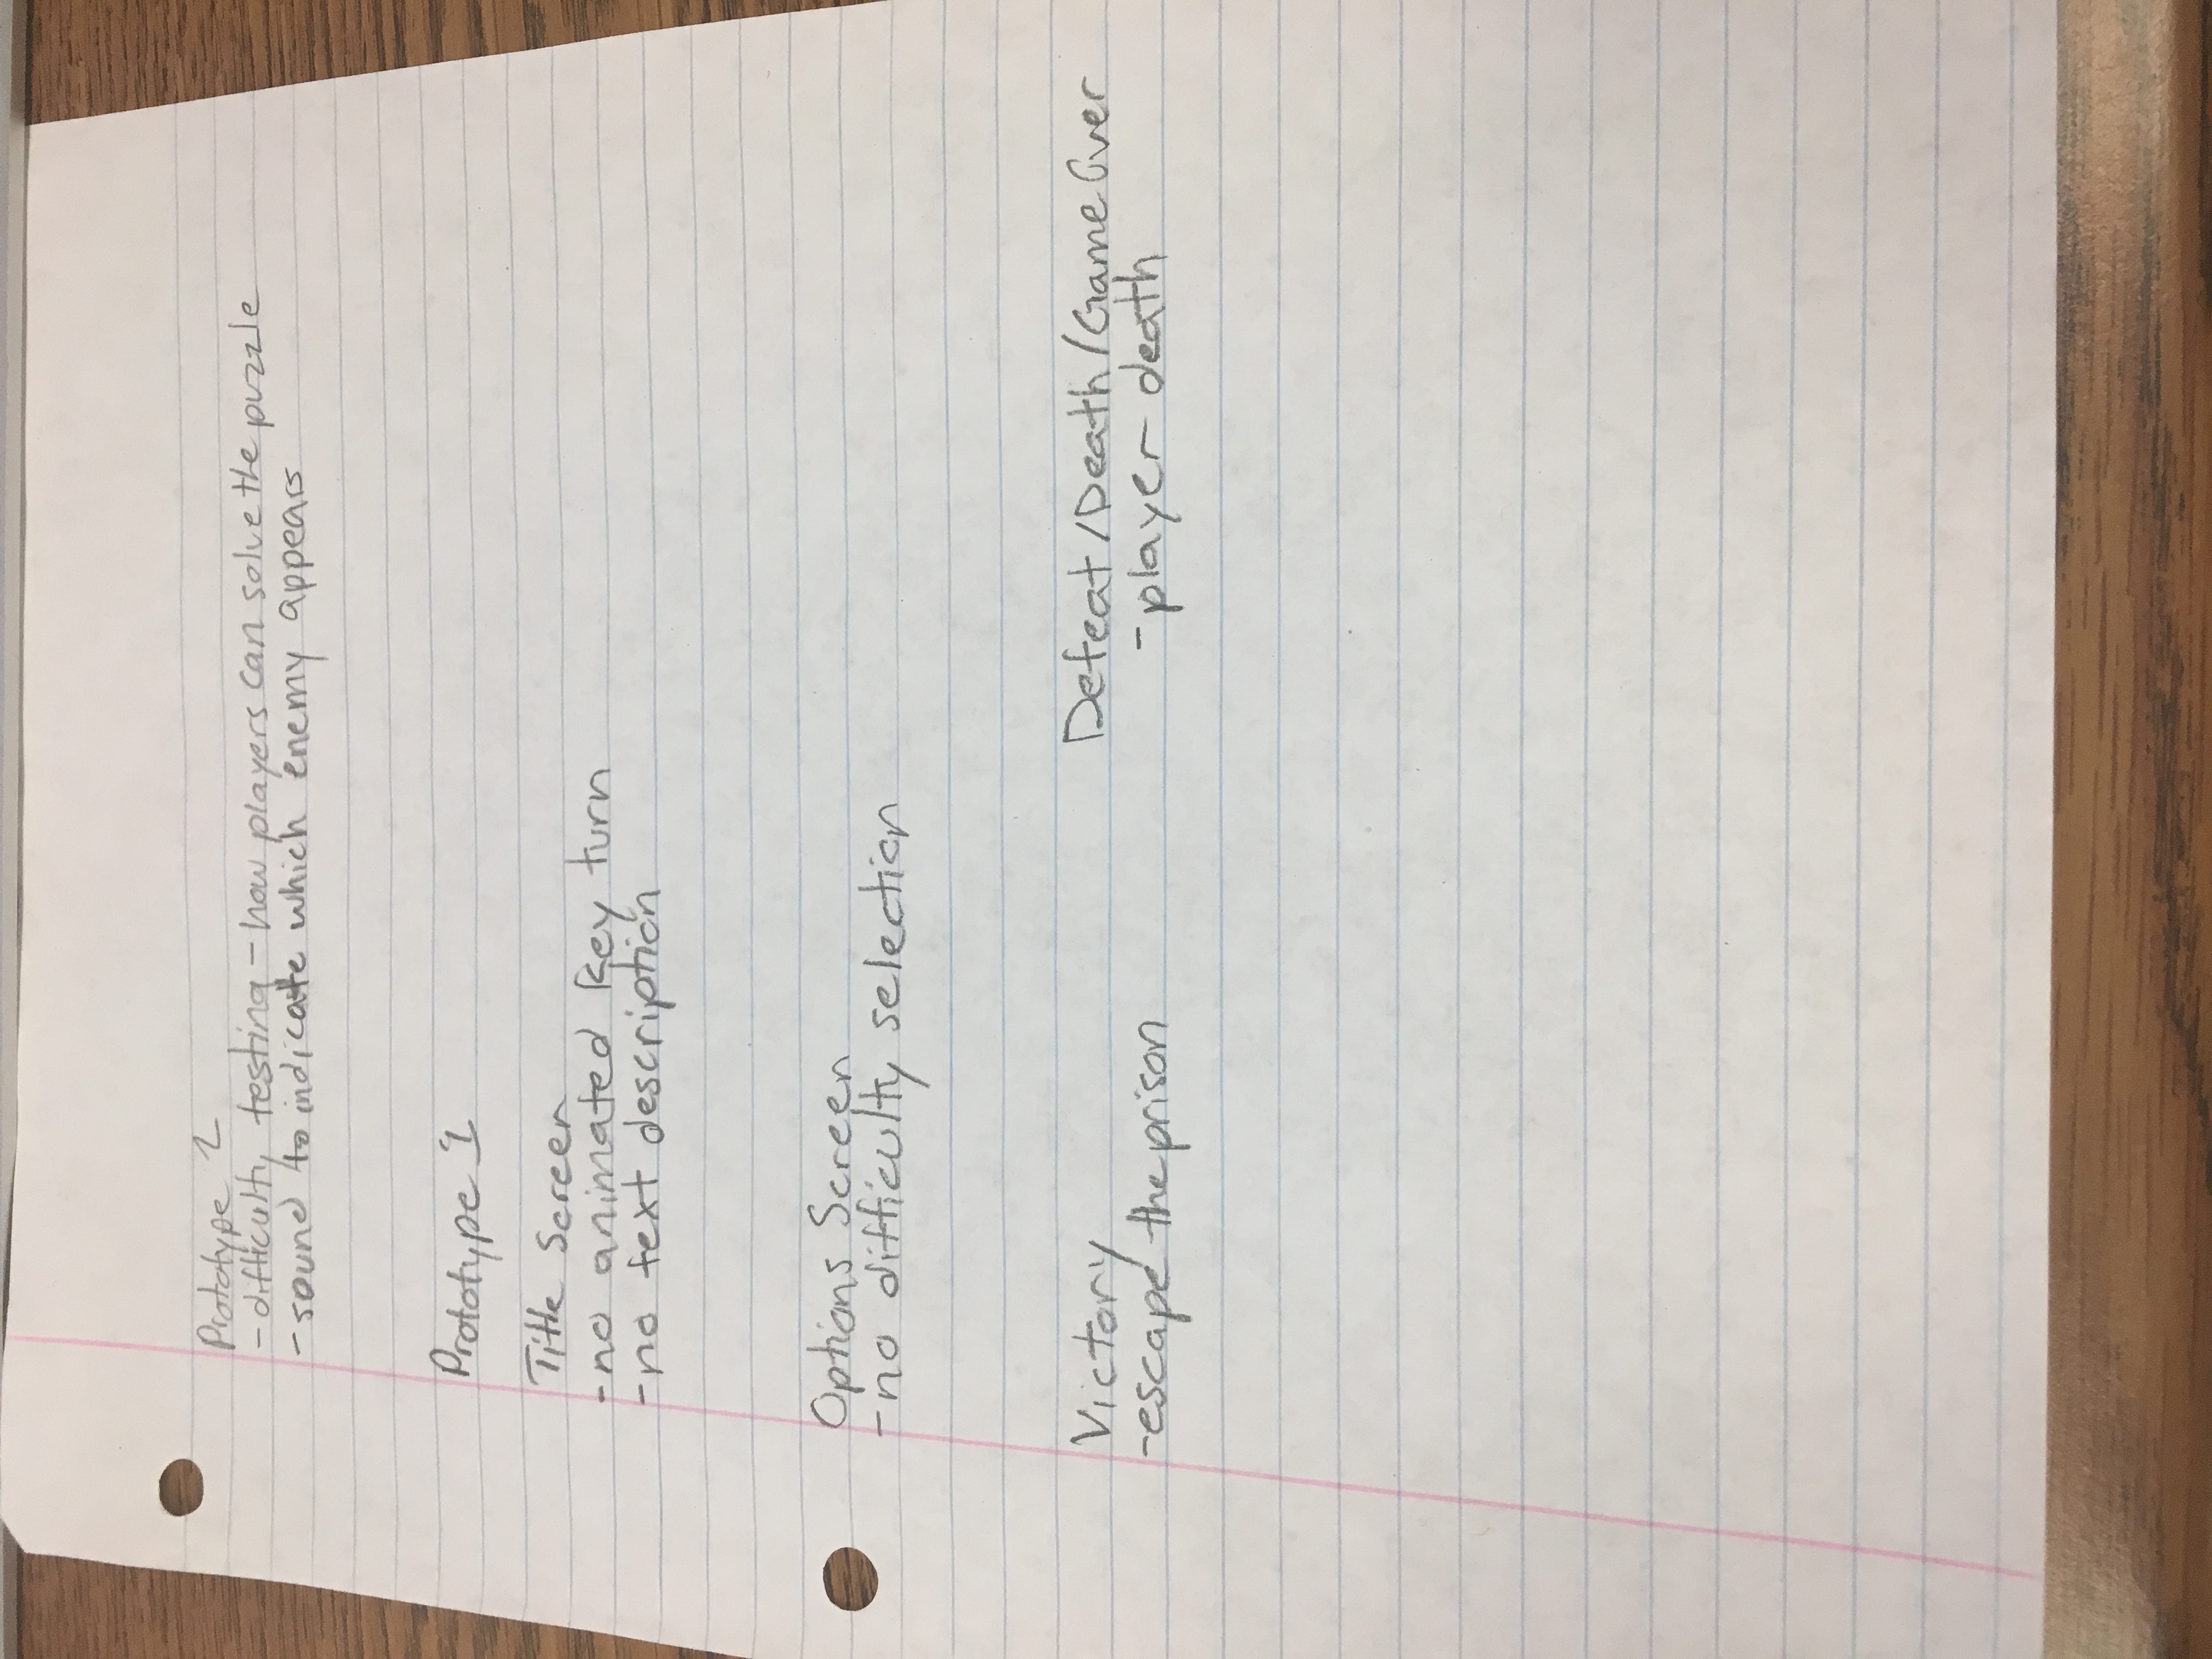 Prototype 2
- difficulty testing - how players can solve the puzzle
- sound to indicate which enemy appears
Prototype 1
Title Screen
-no animated key turn
-no text description
Options Screen
-no difficulty selection
Victory
-escape the prison
Defeat/Death/Game Over
-player death